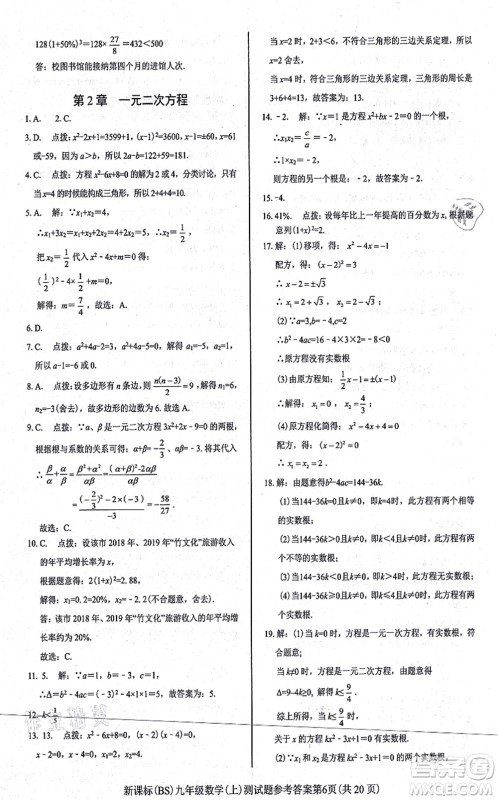 128(1+50%)³=128×27/8=432<500
答：校图书馆能接纳第四个月的进馆人次.
第 2 章 一元二次方程
1. A 2. C
3. D. 点拨：x²-2x+1=3599+1，(x-1)²=3600，x=61
或x=-59，因为 a>b，所以 2a-b=181.
4. C 点拨：方程 x²-6x+8=0 的解要分类讨论，只有
当 x=4 的时候能构成三角形，所以 2+4+4=10.
5. A 解：∵x₁+x₂=4，
∴x₁+3x₂=x₁+x₂+2x₂=4+2x₂=5，∴x₂=1/2，
把 x₂=1/2 代入 x²-4x+m=0得：
(1/2)²-4×1/2+m=0，
解得：m=7/4，故选：A.
6. D
7. C 点拨：a²+4a-2=10，a²+4a-12=0，所以
a=2.
8. A 点拨：a²+4a+2=a²-5a+6a+2=0，所以
a=-1=-6 或 0.
8. A. 点拨：设多边形有 n 条边，则 n(n-3)/2=9，解得n₁=6，
n₂=-3(舍去)，故多边形的边数为 6.
9. C 点拨：∵α、β是一元二次方程 3x²+2x-9=0 的两根，
根据根与系数的关系得 α+β=-2/3，αβ=-3，
∴β/α+α/β=(β²+α²)/αβ=((α+β)²-2αβ)/αβ
=((-2/3)²-2×(-3))/-3=-58/27.
故选：C.
10. C 点拨：设该市 2018 年、2019 年“竹文化”旅游收入
的年平均增长率为 x，
根据题意得：2(1+x)²=2.88，
解得：x₁=0.2=20%，x₂=-2.2(不合题意，舍去).
答：该市 2018 年、2019 年“竹文化”旅游收入的年平均增
长率约为 20%. 故选：C.
11. 5. 解：∵a=1，b=-1，c=-1，
∴Δ=b²-4ac=(-1)²-4×1×(-1)=5，故答案为：5.
12. k<1/5
13. 13. x²-6x+8=0，(x-2)(x-4)=0，
x-2=0，x-4=0，x₁=2，x₂=4，
当x=2 时，2+3<6，不符合三角形的三边关系定理，所
以 x=2 舍去，
当x=4 时，符合三角形的三边关系定理，三角形的周长是
3+6+4=13，故答案为：13.
14. -2. 解：∵x=1 是方程 x²+bx-2=0 的一个根，
∴x₁x₂=c/a=-2，
∴1×x₂=-2，
则方程的另一个根是：-2，故答案为-2.
15. -4.
16. 41%. 点拨：设每年比上一年提高的百分数为 x，根据题
意列(1+x)²=2.
17. 解：(1)移项，得：x²-4x=-1
配方，得：(x-2)²=3
∴x₁=2+√3，x₂=2-√3
(2)∵a=4，b=-4，c=3
∴b²-4ac=16-4×3×2=-8<0
∴原方程没有实数根
∴此方程没有实数根
(3)由原方程知：1/2x-1=±(x-1)
解得：x₁=0，x₂=4/3
(4)原方程可化为：x²-4x+4=0
配方，得：(x-2)²=0
∴x₁=x₂=2
18. 解：b²-4ac=144-36k，
(1)当144-36k>0且k≠0时，此方程有两个不相等
的实数根，
(2)当144-36k=0且k≠0时，此方程有两个相等的
实数根，
(3)当144-36k<0且k≠0时，此方程没有实数根，
(4)当144-36k≥0且k≠0时，此方程有实数根，
19. 解：当 k=0 时，方程是一元一次方程，有实根，符合题
意，
当 k≠0 时，方程是一元二次方程，由题意得
Δ=9-4k≥0，解得 k≤9/4.
综上所述，当 k≤9/4 时，
关于 x 的方程 kx²-3x+1=0 有实数根.
新课标(BS)九年级数学(上)测试题参考答案第6页(共 20 页)